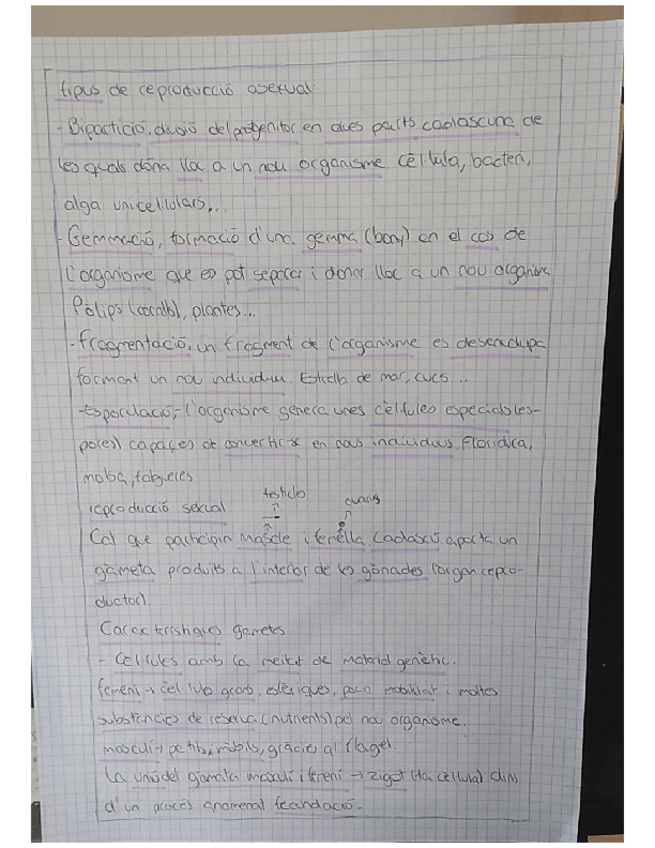 tipus de reproducció asexual
- Bipartició, divisió del progenitor en dues parts cadascuna de
les quals dóna lloc a un nou organisme cèl·lula, bacteri,
alga unicel·lulars,...
- Gemmació, formació d'una gemma (bony) en el cos de
l'organisme que es pot separar i donar lloc a un nou organisme
Pòlips (coralls), plantes...
- fragmentació, un fragment de l'organisme es desenvolupa
formant un nou individuu. Estrella de mar, cucs...
- Esporulació, l'organisme genera unes cèl·lules especials (es-
pores) capaces de convertir-se en nous individuus, Floridura,
molsa, falgueres
reproducció sexual
testicles
ovaris
Cal que participin mascle i femella. Cadascú aporta un
gàmeta produits a l'interior de les gònades (òrgan repro-
ductor).
Característiques gàmetes
- Cèl·lules amb la meitat de material genètic.
femení → cèl·lula grans, esfèriques, poca mobilitat i moltes
substàncies de reserva (nutrients) pel nou organisme.
masculí → petits, mòbils, gràcies al flagel.
la unió del gàmeta masculí i femení → zigot (1a cèl·lula) dins
d'un procés anomenat fecundació.